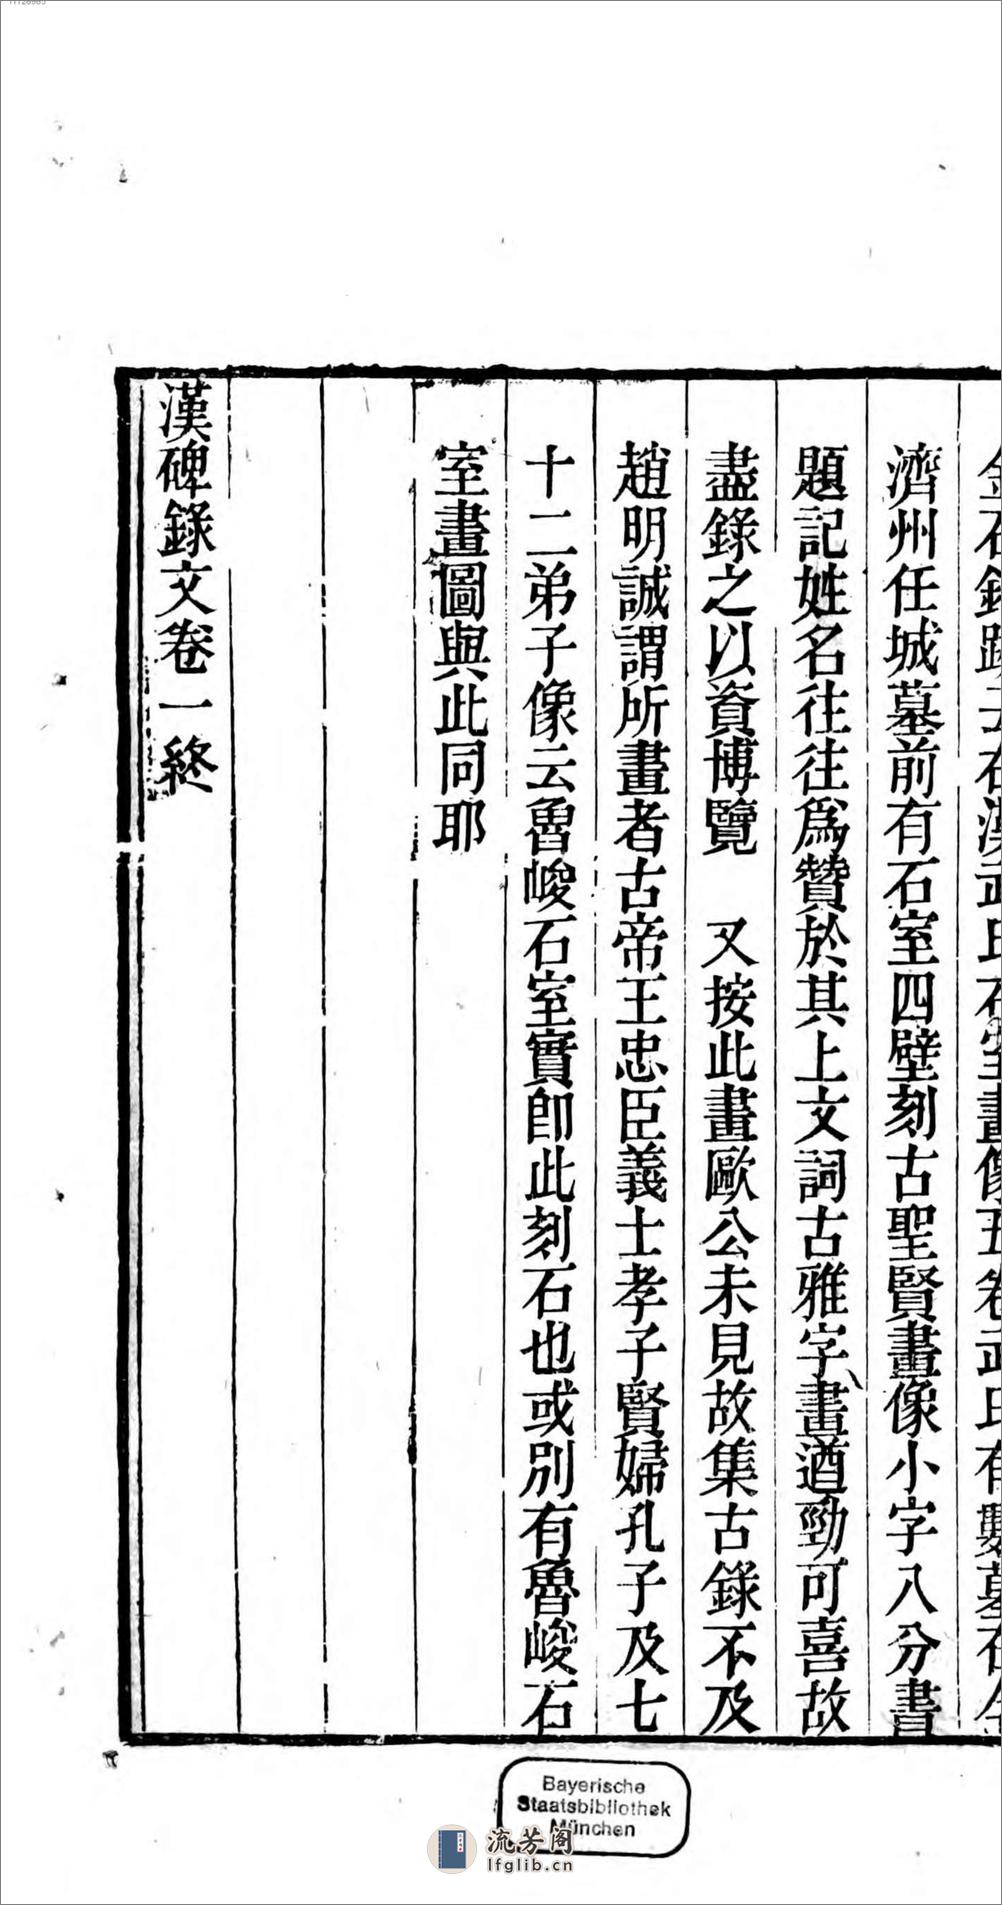 金石錄跋云右漢武氏石室畫像五卷武氏有數墓在今
濟州任城墓前有石室四壁刻古聖賢畫像小字八分書
題記姓名往往爲贊於其上文詞古雅字畫遒勁可喜故
盡錄之以資博覽　又按此畫歐公未見故集古錄不及
趙明誠謂所畫者古帝王忠臣義士孝子賢婦孔子及七
十二弟子像云魯峻石室實卽此刻石也或別有魯峻石
室畫圖與此同耶
漢碑錄文卷一終
Bayerische
Staatsbibliothek
München
流芳阁
lfglib.cn